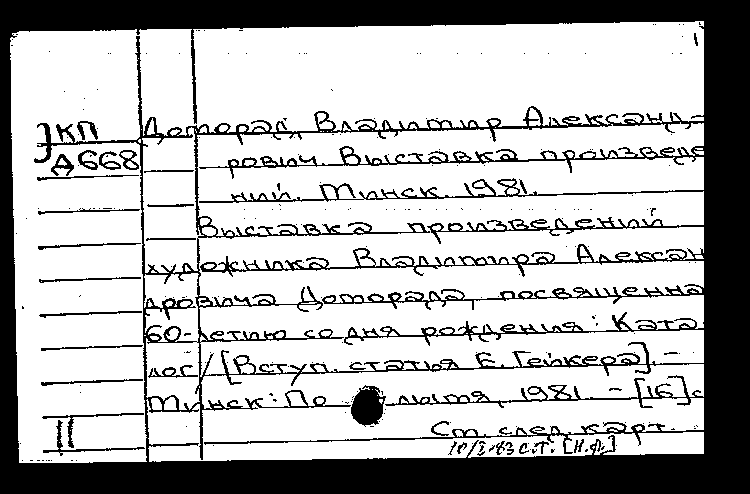 1
КП Доморад, Владимир Александ-
Д668 рович. Выставка произведе
ний. Минск. 1981.
Выставка произведений
художника Владимира Алексан
дровича Доморада, посвященна
60-летию со дня рождения: Ката
лог/[Вступ. статья Е. Гейкера]. -
Минск: По лымя, 1981. - [16]с
Ст. след. карт.
II